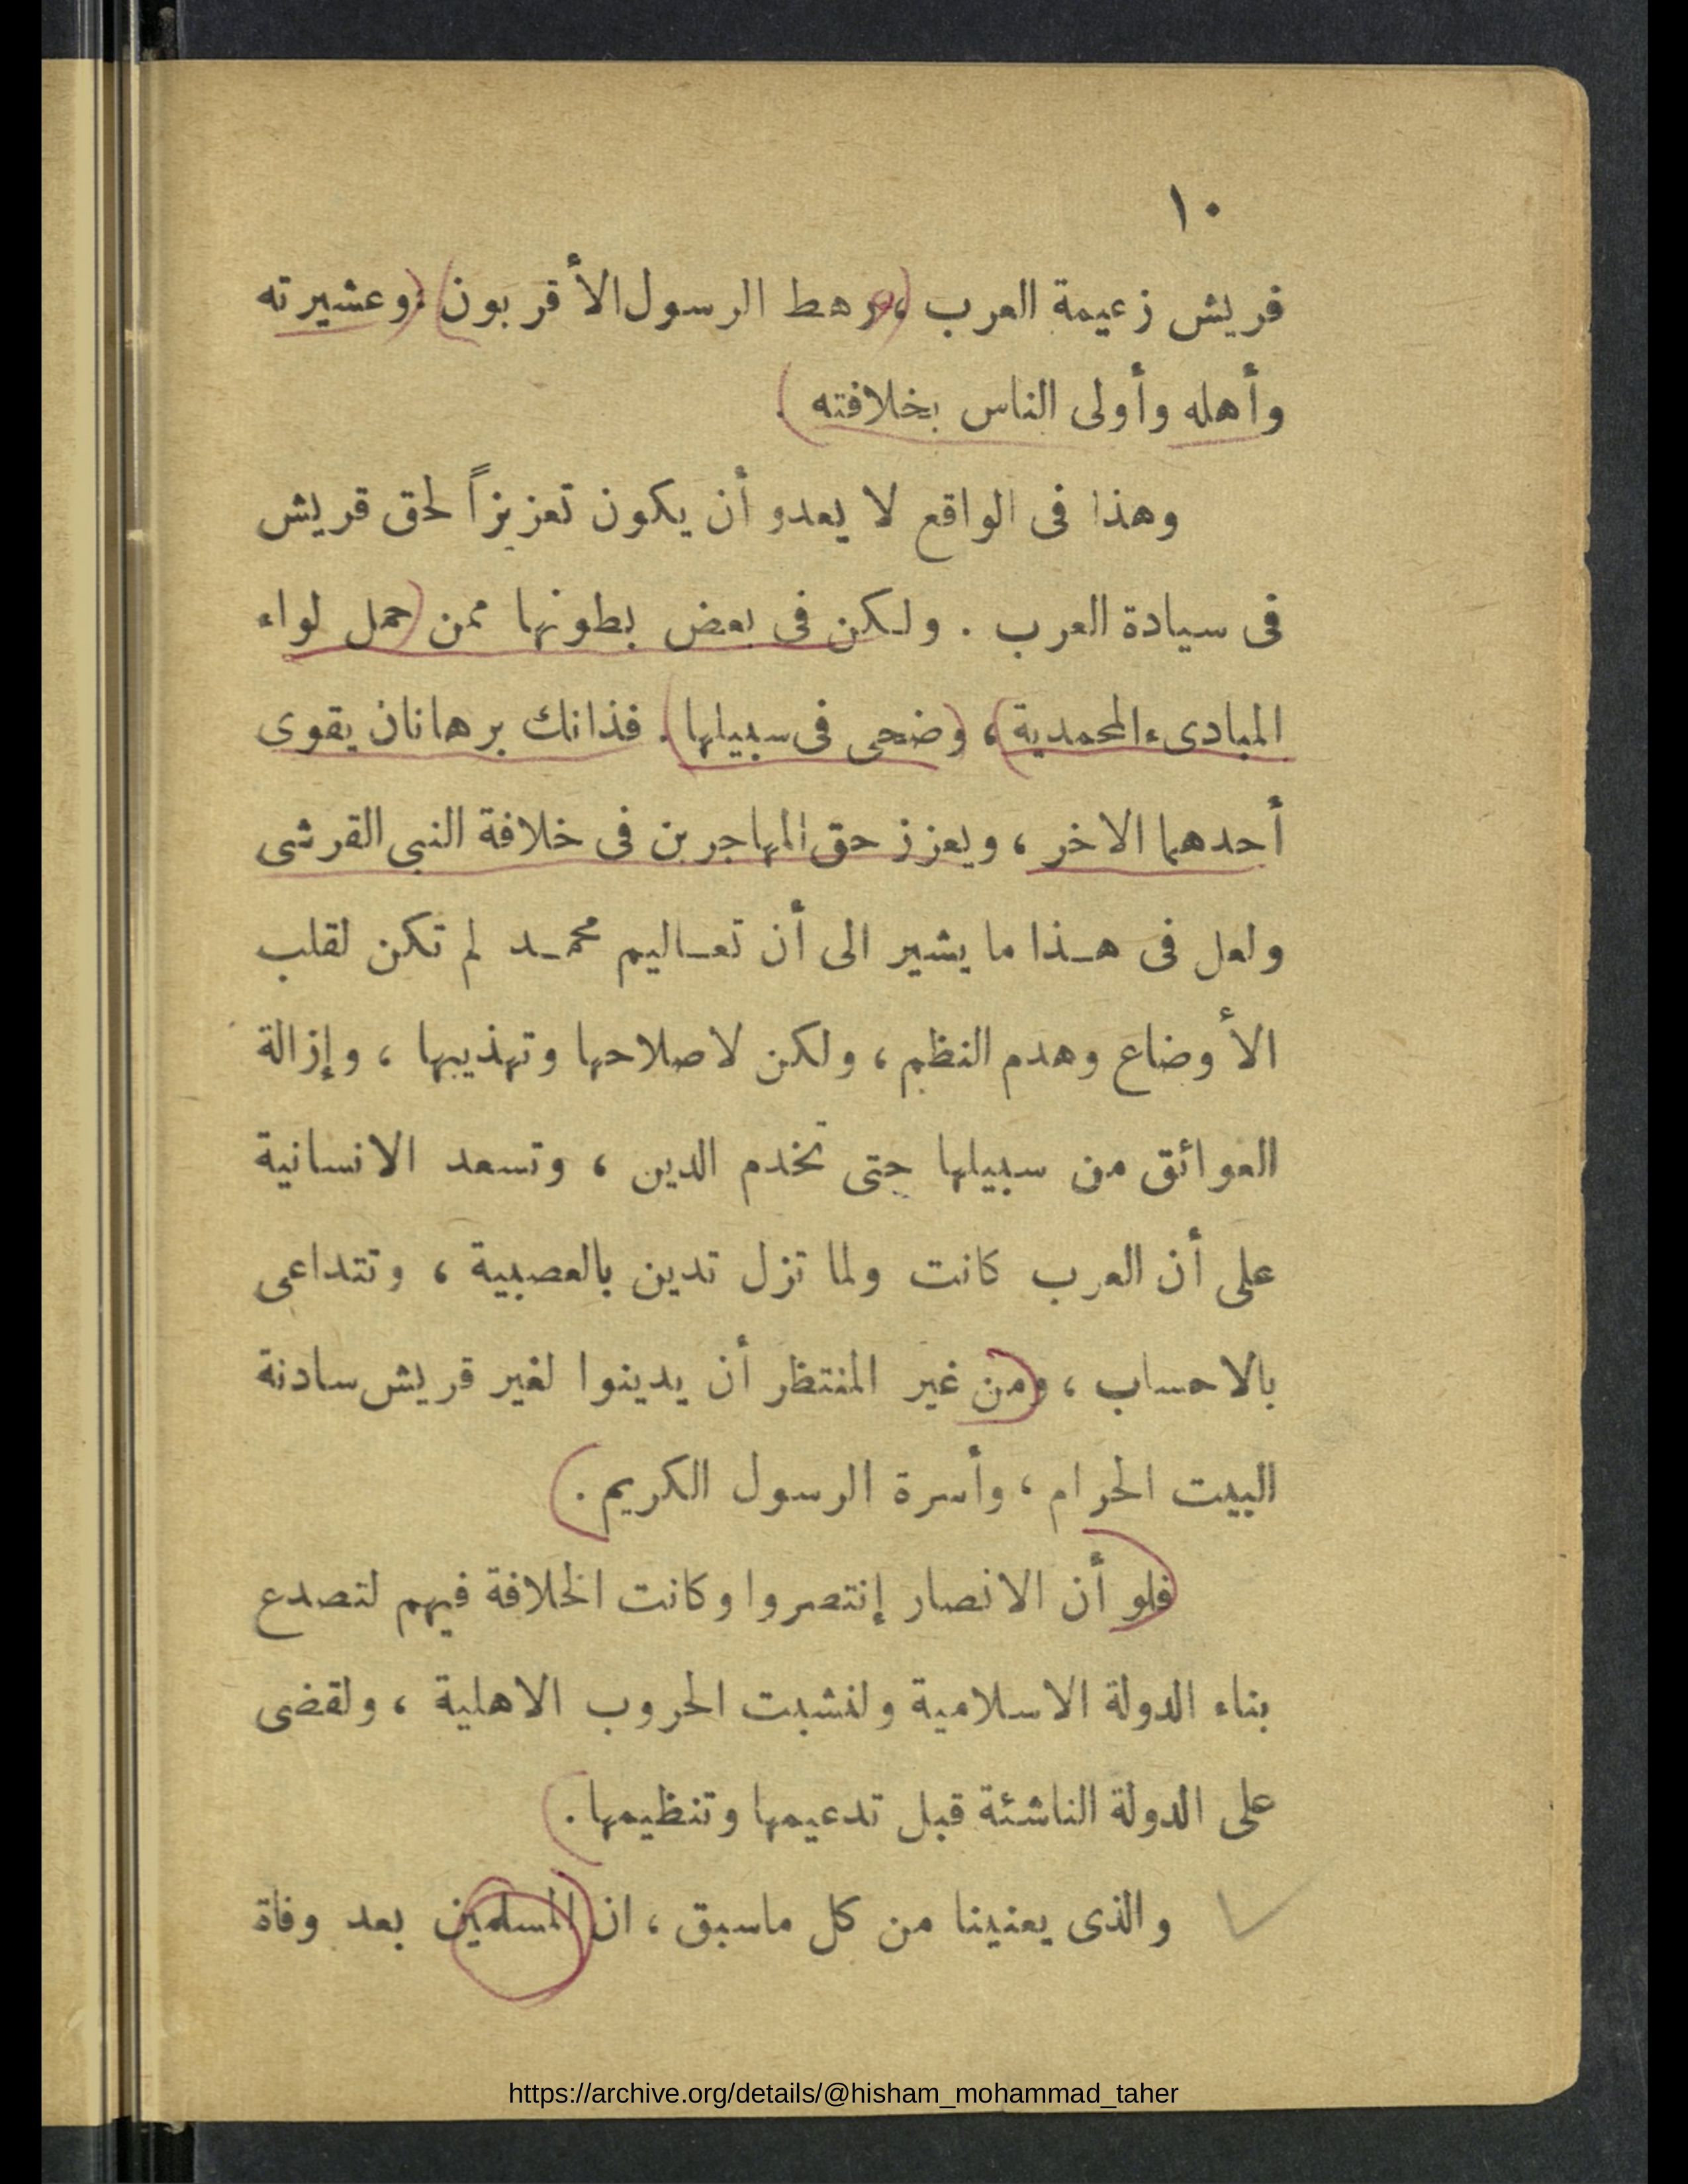 ١٠
قريش زعيمة العرب ، رهط الرسول الأقربون ، وعشيرته
وأهله وأولى الناس بخلافته .
وهذا فى الواقع لا يعدو أن يكون تعزيزاً لحق قريش
فى سيادة العرب . ولكن فى بعض بطونها ممن حمل لواء
المبادىء المحمدية ، وضحى فى سبيلها . فذانك برهانان يقوى
أحدهما الاخر ، ويعزز حق المهاجرين فى خلافة النبى القرشى
ولعل فى هـذا ما يشير الى أن تعـاليم محمـد لم تكن لقلب
الأوضاع وهدم النظم ، ولكن لاصلاحها وتهذيبها ، وإزالة
العوائق من سبيلها حتى تخدم الدين ، وتسعد الانسانية
على أن العرب كانت ولما تزل تدين بالعصبية ، وتتداعى
بالاحساب ، ومن غير المنتظر أن يدينوا لغير قريش سادنة
البيت الحرام ، وأسرة الرسول الكريم .
فلو أن الانصار إنتصروا وكانت الخلافة فيهم لتصدع
بناء الدولة الاسلامية ولنشبت الحروب الاهلية ، ولقضى
على الدولة الناشئة قبل تدعيمها وتنظيمها .
والذى يعنينا من كل ماسبق ، ان المسلمين بعد وفاة
https://archive.org/details/@hisham_mohammad_taher